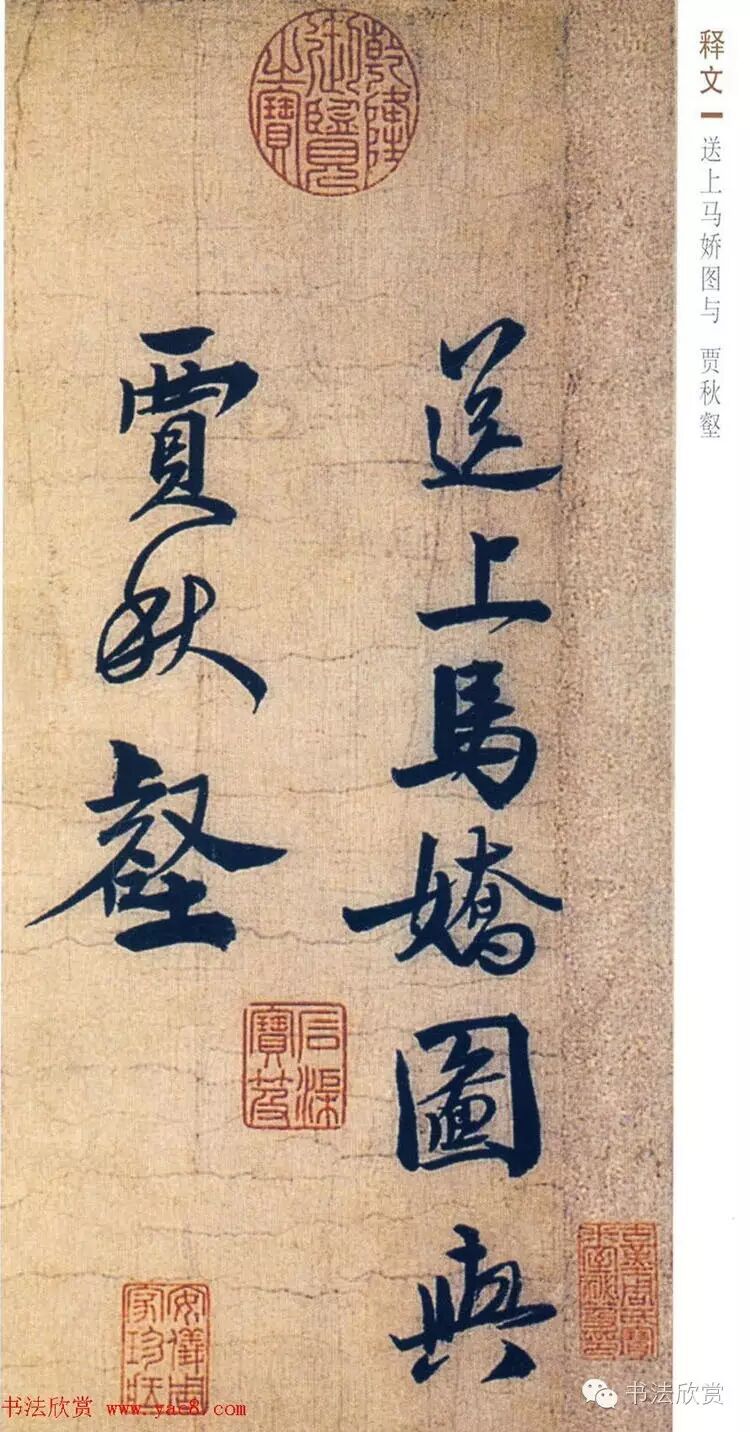 释文 送上马娇图与 贾秋壑
送上馬嬌圖與
賈秋壑
乾隆御覽之寶
石渠寶笈
安儀周家珍藏
书法欣赏 www.yac8.com
书法欣赏